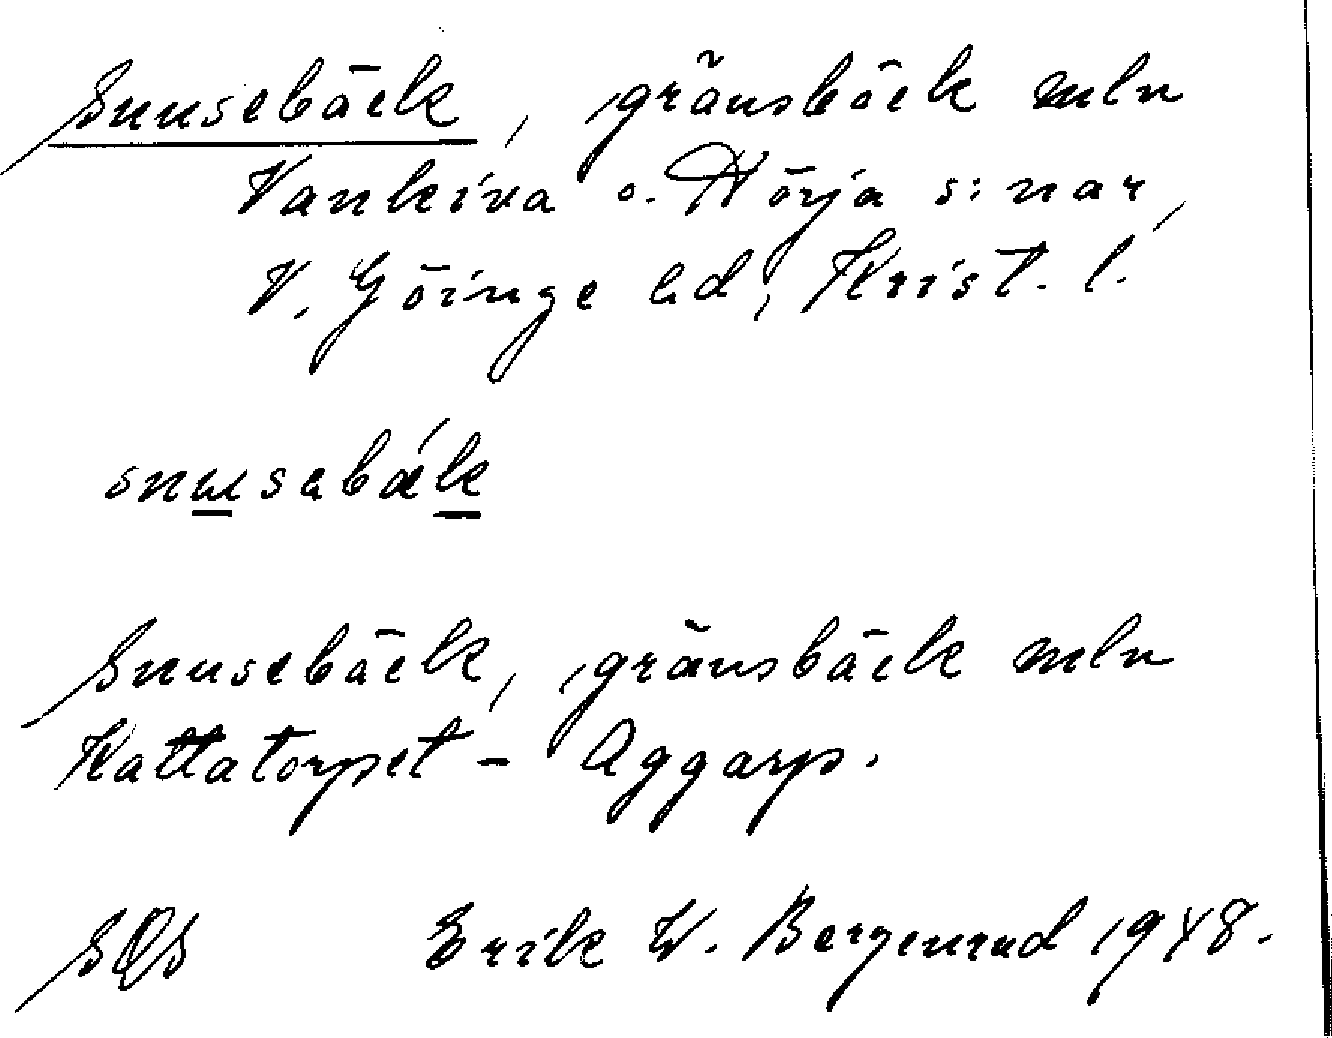 Snusebäck, gränsbäck mln
Vankiva o. Nörja s:nar,
V. Göinge hd, Krist. l.
snusabäk
Snusebäck, gränsbäck mln
Kattatorpet - Aggarp.
SOS Erik W. Bergenrud 1948.